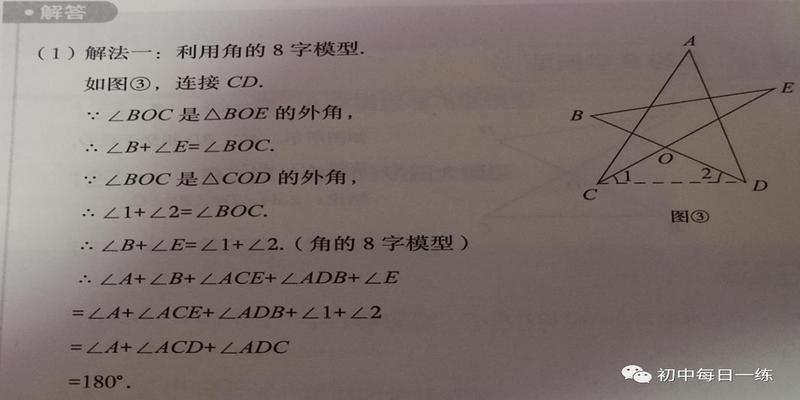 • 解答
（1）解法一：利用角的8字模型.
如图③，连接CD.
∵∠BOC是△BOE的外角，
∴∠B+∠E=∠BOC.
∵∠BOC是△COD的外角，
∴∠1+∠2=∠BOC.
∴∠B+∠E=∠1+∠2.（角的8字模型）
∴∠A+∠B+∠ACE+∠ADB+∠E
=∠A+∠ACE+∠ADB+∠1+∠2
=∠A+∠ACD+∠ADC
=180°.
A
E
B
O
1
2
C
D
图③
初中每日一练